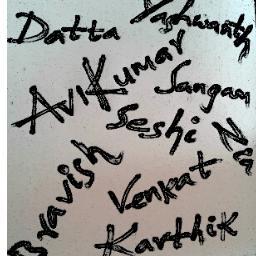 Datta
Yashwanth
AviKumar
Sangam
Seshi
Bravish
Venkat
Karthik